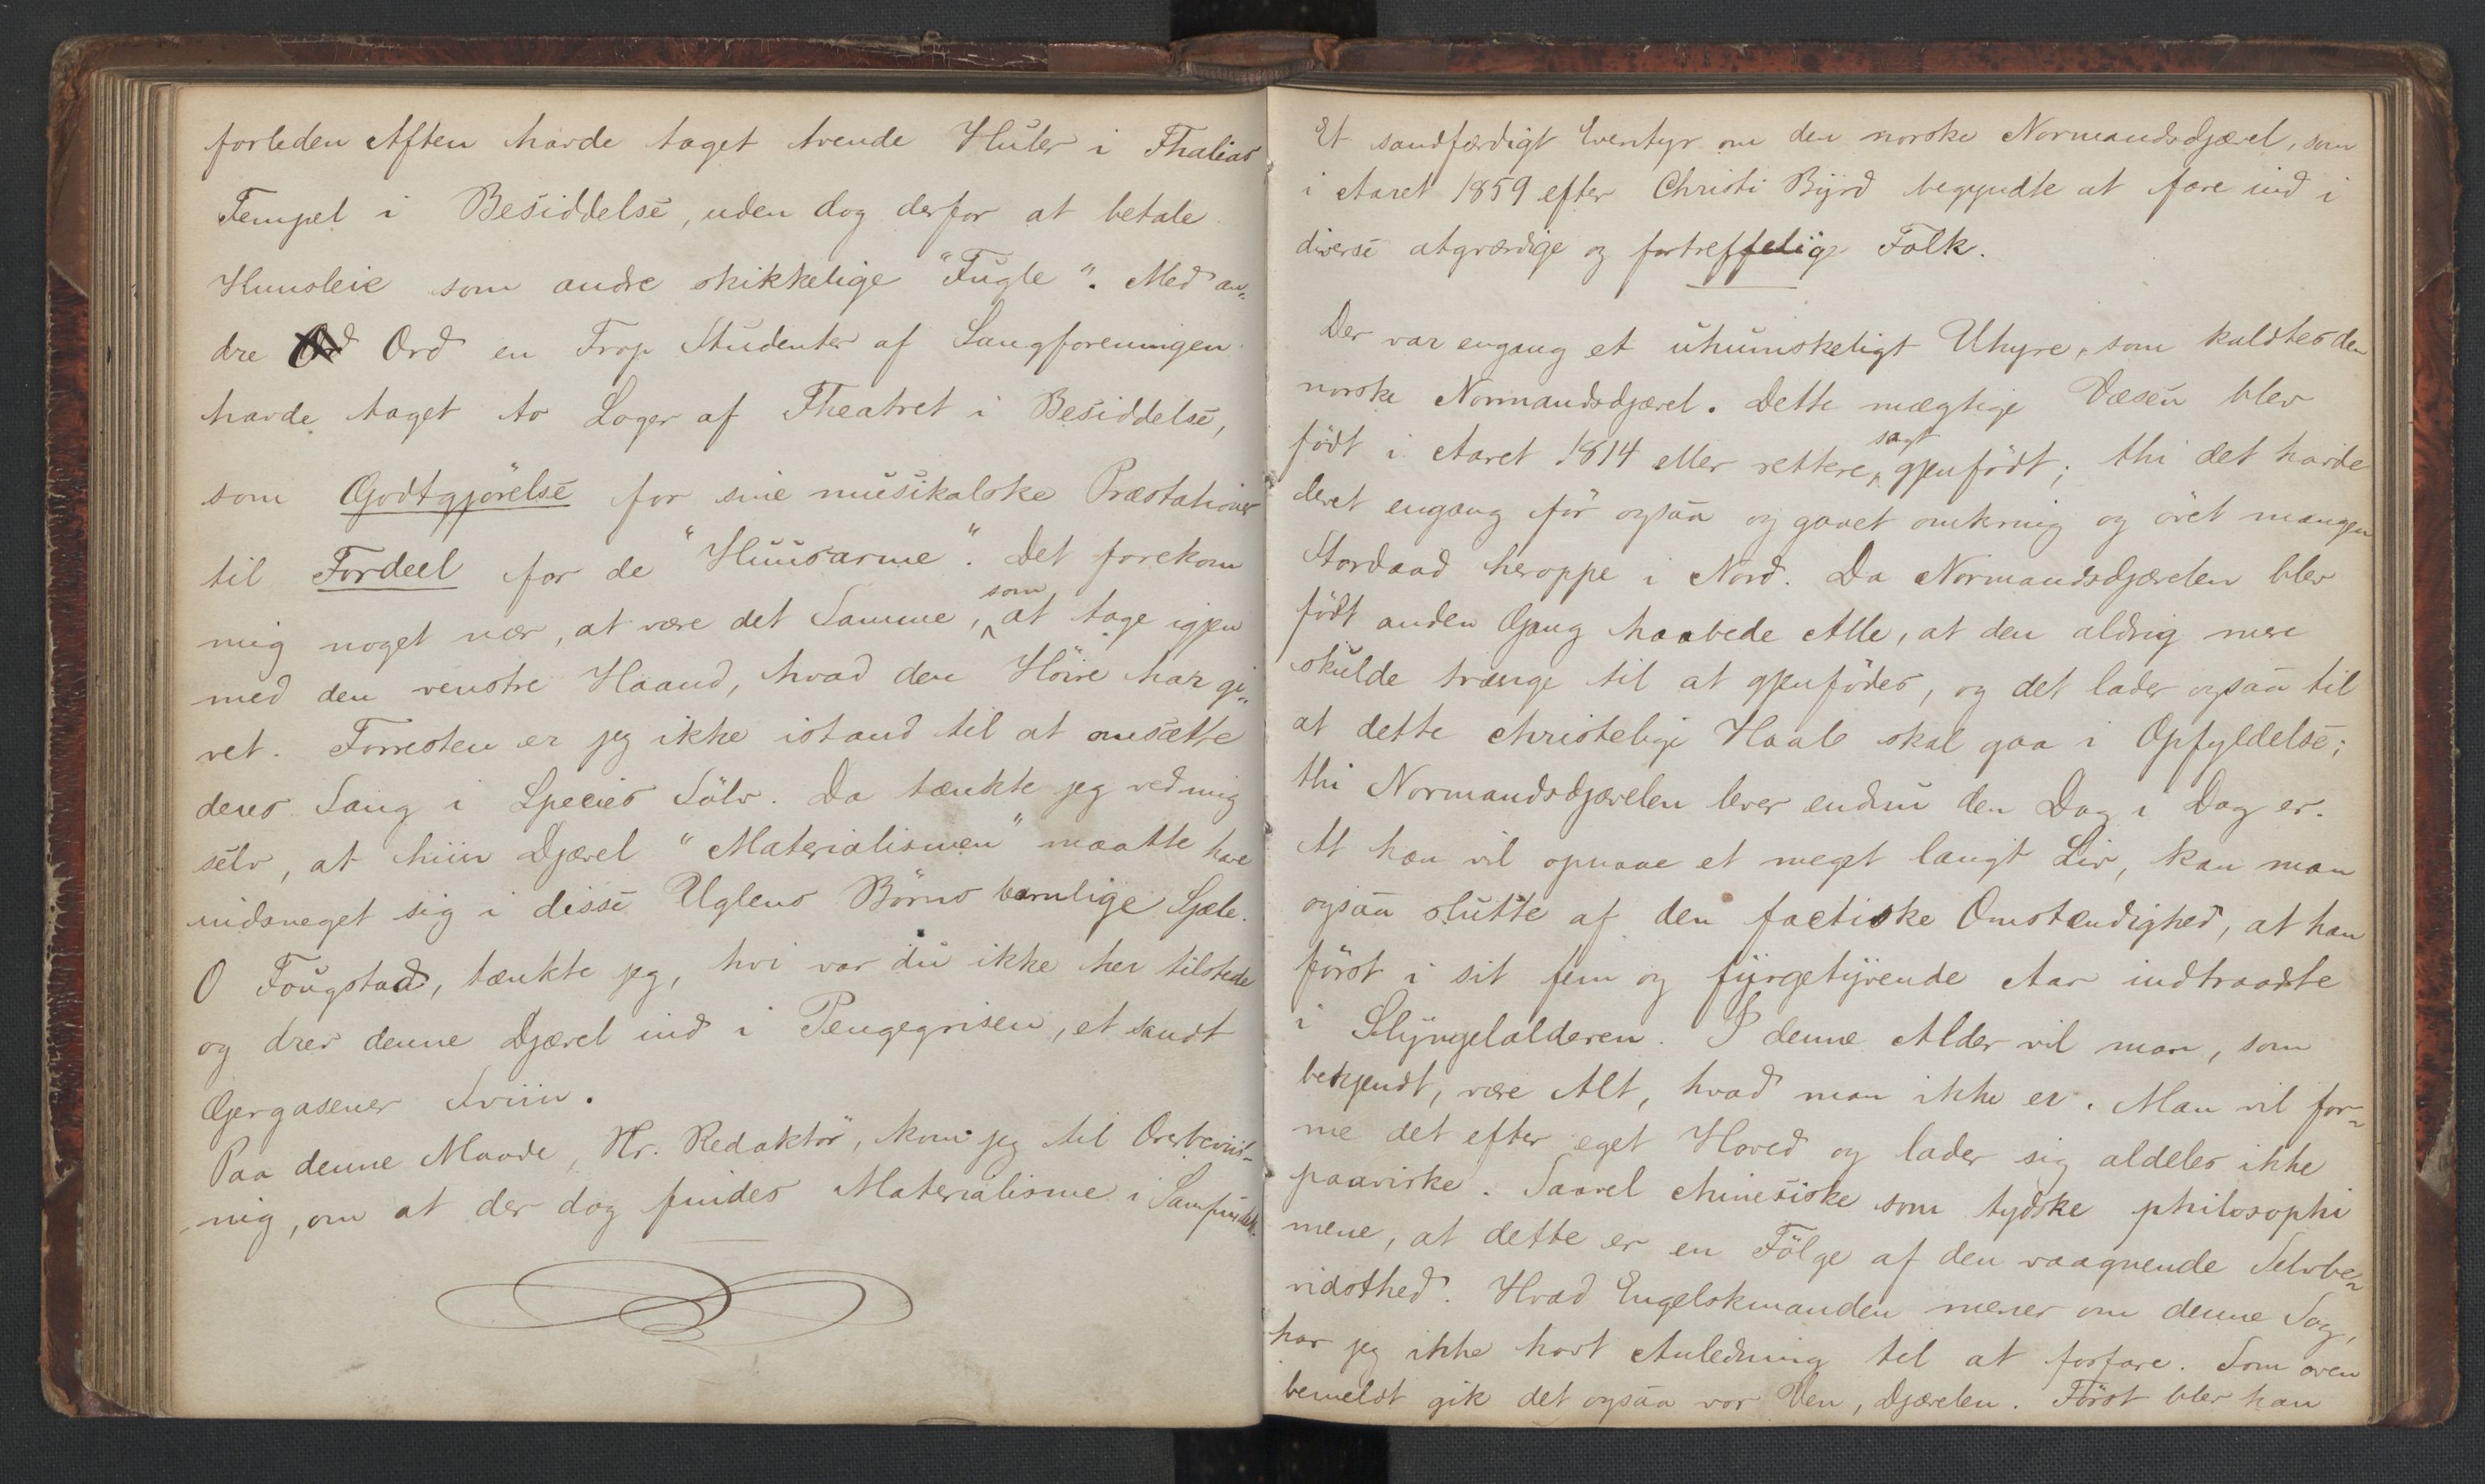 forleden Aften havde taget tvende Huler i Thalias
Tempel i Besiddelse, uden dog derfor at betale
Huusleie som andre skikkelige "Fugle". Med an-
dre Ord Ord en Trop Studenter af Sangforeningen
havde taget to Loger af Theatret i Besiddelse,
som Godtgjörelse for sine musikalske Præstationer
til Fordeel for de "Huusarme". Det forekom
mig noget nær, at være det Samme, som at tage igjen
med den venstre Haand, hvad den Höire har gi-
vet. Forresten er jeg ikke istand til at omsætte
deres Sang i Species Sölv. Da tænkte jeg ved mig
selv, at hiin Djævel "Materialismen" maatte have
indsneget sig i disse Uglens Börns barnlige Sjæle.
O Fougstad, tænkte jeg, hvi var du ikke her tilstede
og drev denne Djævel ind i Pengegrisen, et sandt
Gergasener Sviin.
Paa denne Maade, Hr. Redaktör, kom jeg til Overbeviis-
ning, om at der dog findes Materialisme i Samfundet.
Et sandfærdigt Eventyr om den norske Normandsdjævel, som
i Aaret 1859 efter Christi Byrd begyndte at fare ind i
diverse atgværdige og fortreffelige Folk.
Der var engang et uhumskeligt Uhyre, som kaldtes den
norske Normandsdjævel. Dette mægtige Væsen blev
födt i Aaret 1814 eller rettere sagt gjenfödt; thi det havde
levet engang för ogsaa og gaaet omkring og övet mangen
Stordaad heroppe i Nord. Da Normandsdjævelen blev
födt anden Gang haabede Alle, at den aldrig mere
skulde trænge til at gjenfödes, og det lader ogsaa til
at dette christelige Haab skal gaa i Opfyldelse;
thi Normandsdjævelen lever endnu den Dag i Dag er.
At han vil opnaae et meget langt Liv, kan man
ogsaa slutte af den factiske Omstændighed, at han
först i sit fem og fyrgetyvende Aar indtraadte
i Slyngelalderen. I denne Alder vil man, som
bekjendt, være Alt, hvad man ikke er. Man vil for-
me det efter eget Hoved og lader sig aldeles ikke
paavirke. Saavel chinesiske som tydske philosophi
mene, at dette er en Fölge af den vaagnende Selvbe-
vidsthed. Hvad Engelskmanden mener om denne Sag,
har jeg ikke havt Anledning til at forfare. Som oven
bemeldt gik det ogsaa vor Ven, Djævelen. Först blev han